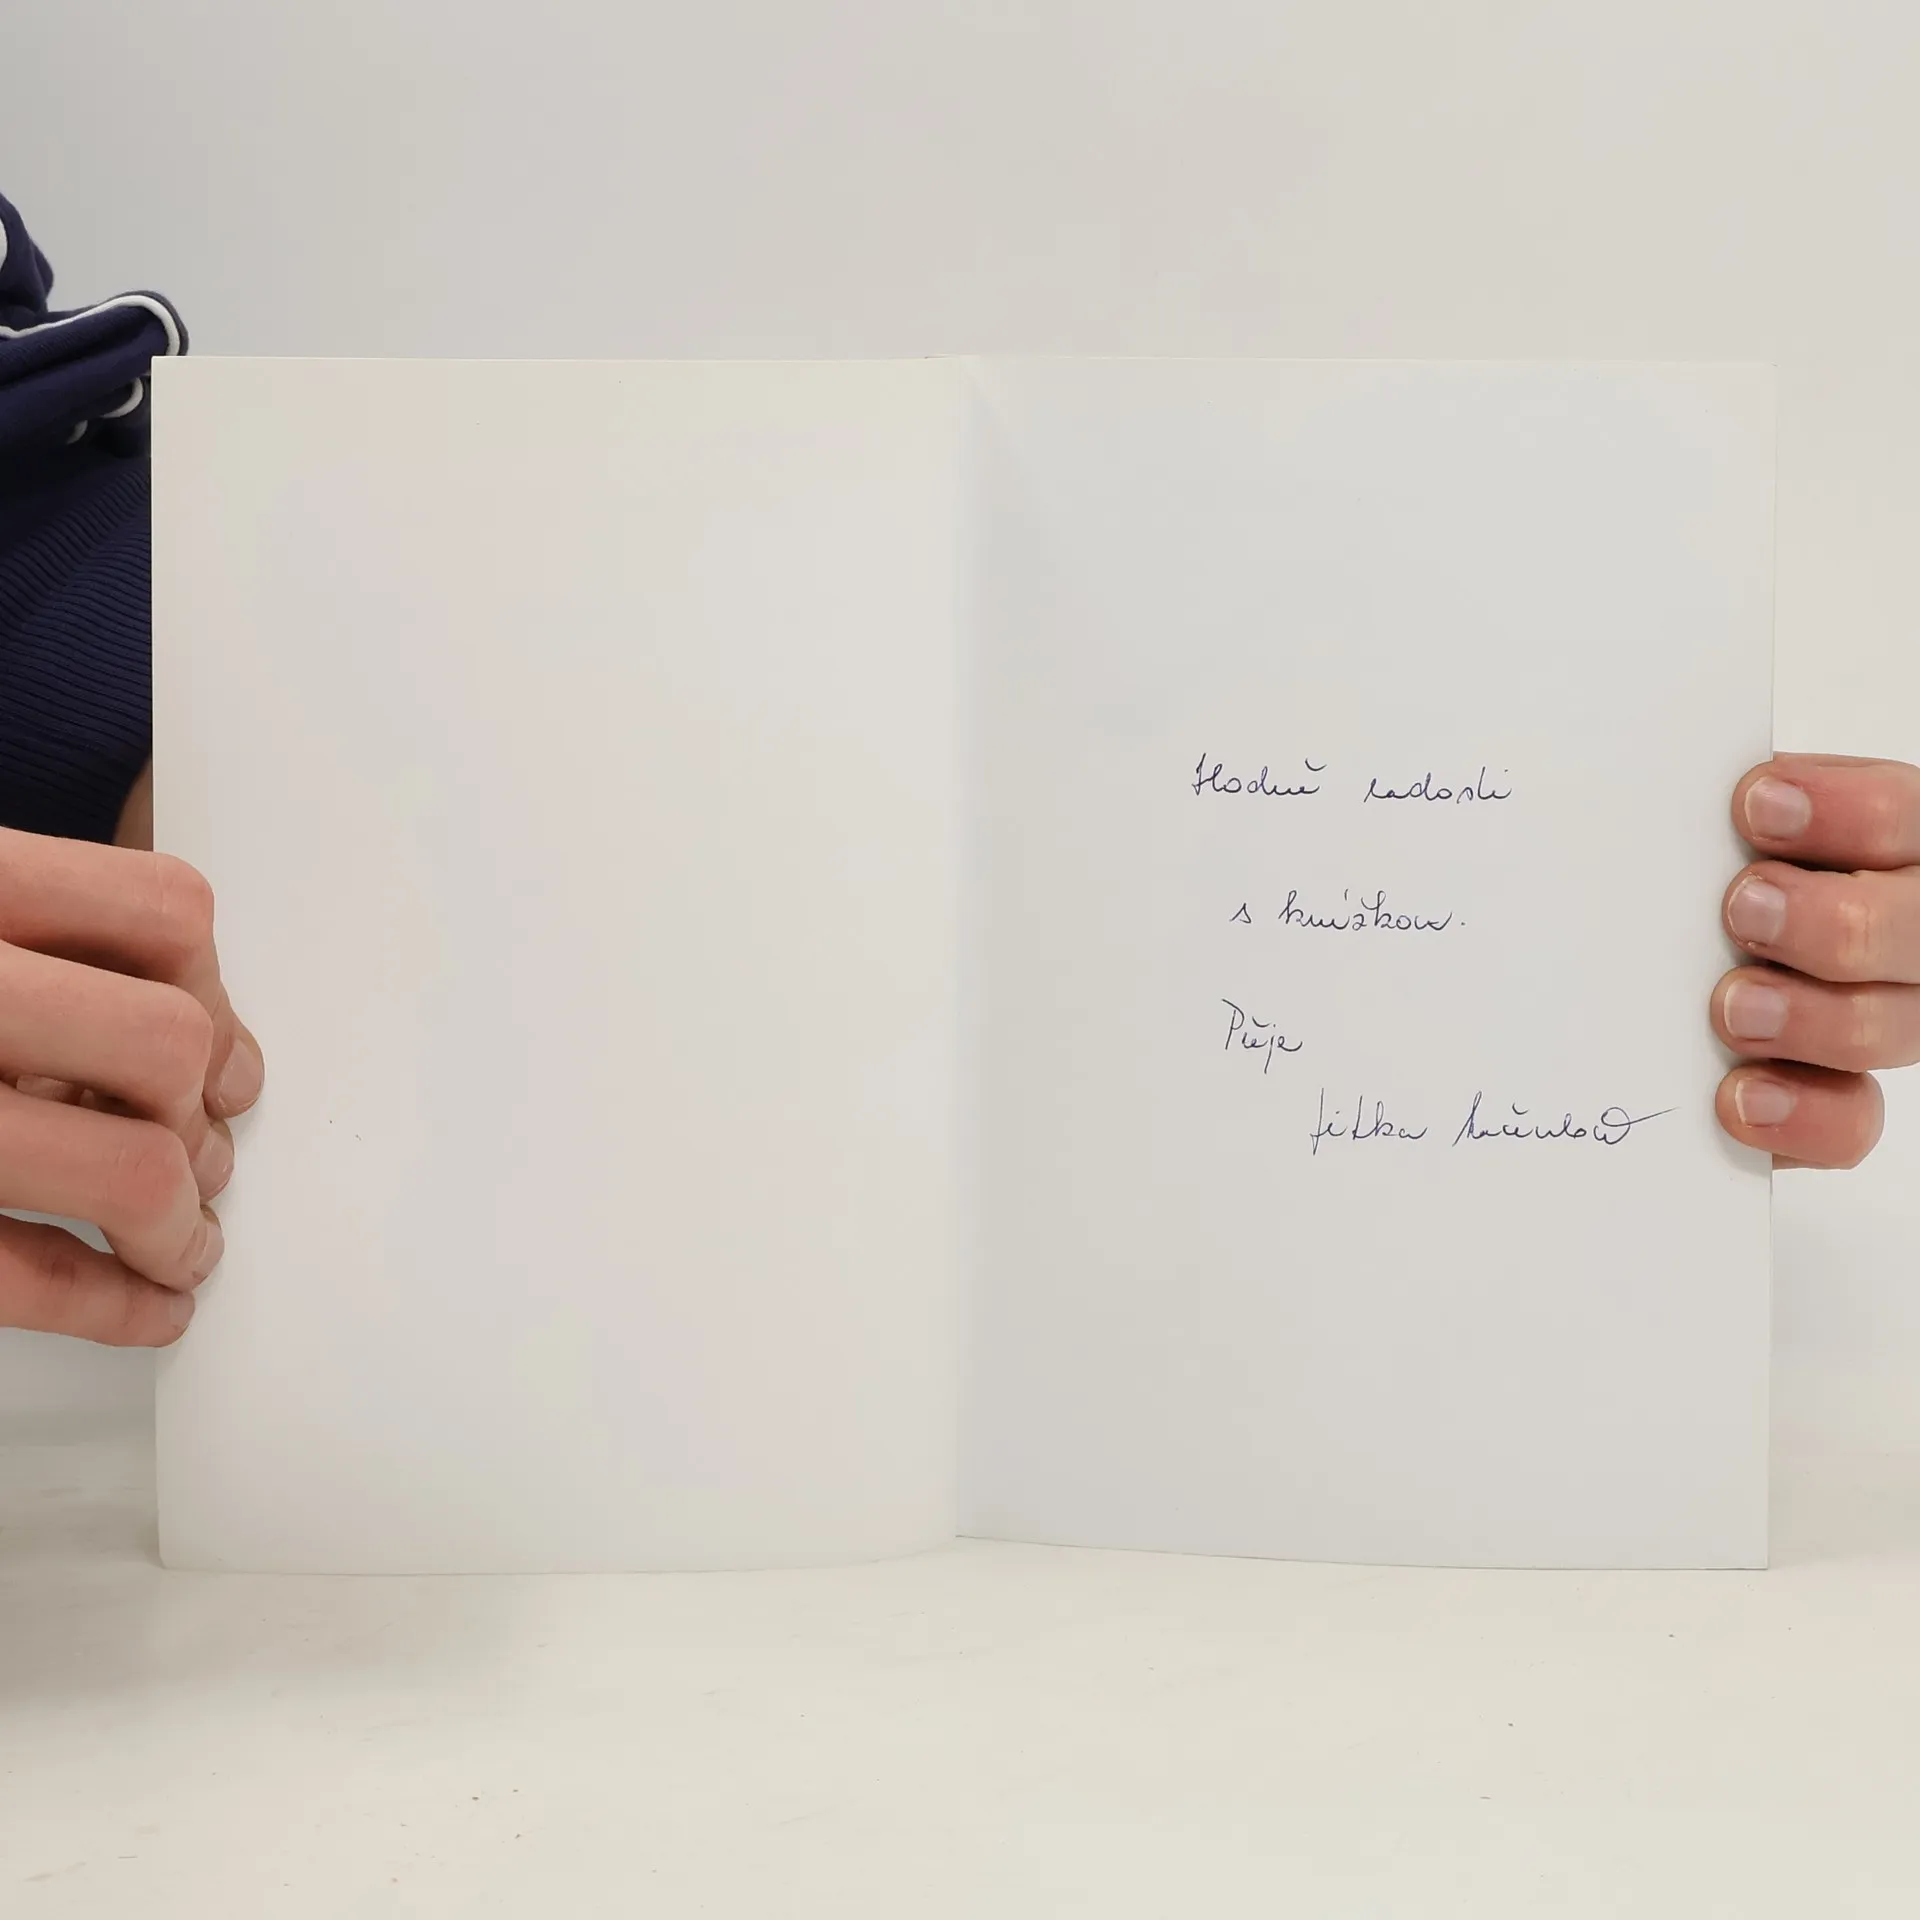 Hodně radosti
s knížkou.
Přeje
Jitka